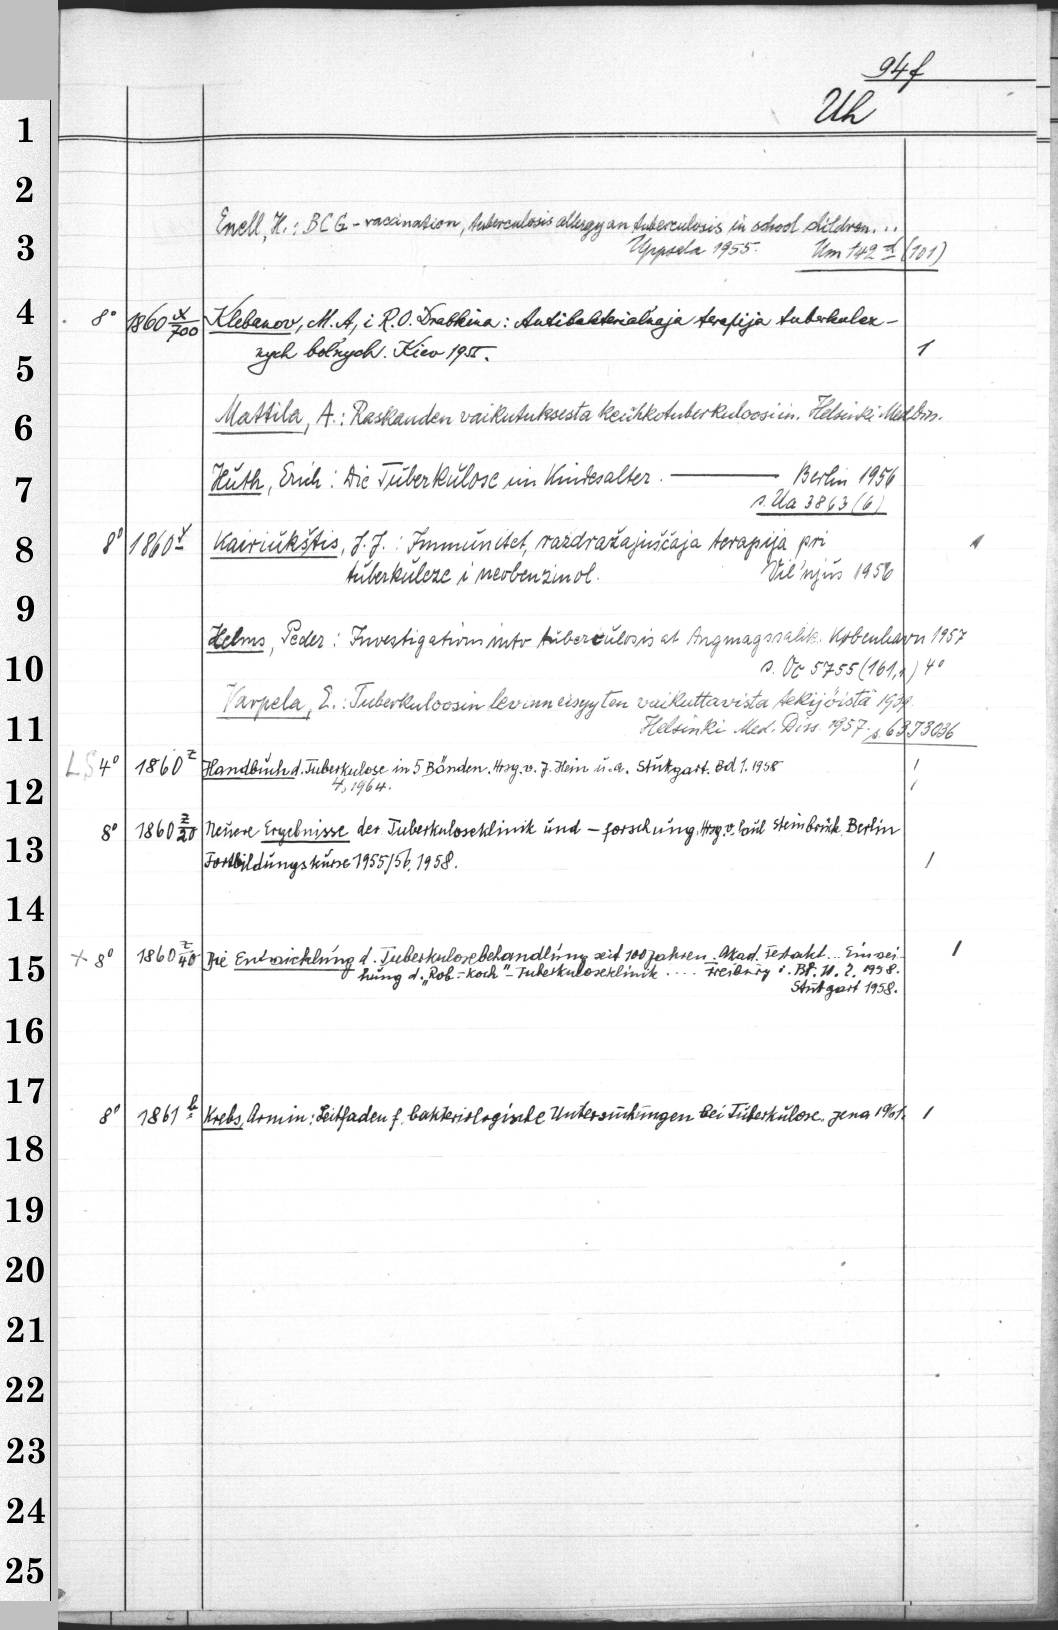 94f
Uh
1
2
Enell, H.: BCG-vaccination, tuberculosis allergy an tuberculosis in school children...
3
Uppsala 1955. Um 142 d (101)
4
8° 1860 x/700 Klebanov, M. A, i R. O. Drabkina: Antibakterial'naja terapija tuberkulez-
nych bol'nych. Kiev 1955. 1
5
6
Mattila, A.: Raskauden vaikutuksesta keuhkotuberkuloosiin. Helsinki Med. Diss.
7
Huth, Erich: Die Tuberkulose im Kindesalter. Berlin 1956
s. Ua 3863 (6)
8
8° 1860 y Kairiukštis, J. J.: Immunitet, razdražajuščaja terapija pri 1
tuberkuleze i neobenzinol. Vil'njus 1956
9
Helms, Peder: Investigations into tuberculosis at Angmagssalik. Kobenhavn 1957
10
s. Oc 5755 (161,1) 4°
Varpela, E.: Tuberkuloosin levinneisyyten vaikuttavista tekijöistä 1939
11
Helsinki Med. Diss. 1957. s. 63 J 3036
LS 4° 1860 z Handbuch d. Tuberkulose in 5 Bänden. Hrsg. v. J. Hein u. a. Stuttgart. Bd 1. 1958 1
12
4, 1964. 1
8° 1860 z/20 Neuere Ergebnisse der Tuberkuloseklinik und -forschung. Hrsg. v. Paul Steinbrück. Berlin
13
Fortbildungskurse 1955/56. 1958. 1
14
15
x 8° 1860 z/40 Die Entwicklung d. Tuberkulosebehandlung seit 100 Jahren. Akad. Festakt... Einwei- 1
hung d. „Rob.-Koch"-Tuberkuloseklinik.... Freiburg i. Br. 11. 2. 1958.
Stuttgart 1958.
16
17
8° 1861 b Krebs, Armin: Leitfaden f. bakteriologische Untersuchungen bei Tuberkulose. Jena 1961. 1
18
19
20
21
22
23
24
25